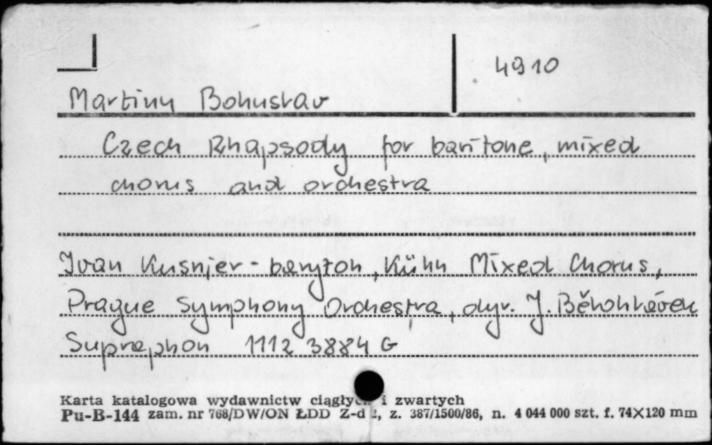 4910
Martinu Bohuslav
Czech Rhapsody for baritone, mixed
chorus and orchestra
Ivan Kusnjer - baryton, Kühn Mixed Chorus,
Prague Symphony Orchestra, dyr. J. Bělohlávek
Supraphon 1112 3884 G
Karta katalogowa wydawnictw ciągłych i zwartych
Pu-B-144 zam. nr 768/DW/ON ŁDD Z-d 2, z. 387/1500/86, n. 4 044 000 szt. f. 74×120 mm